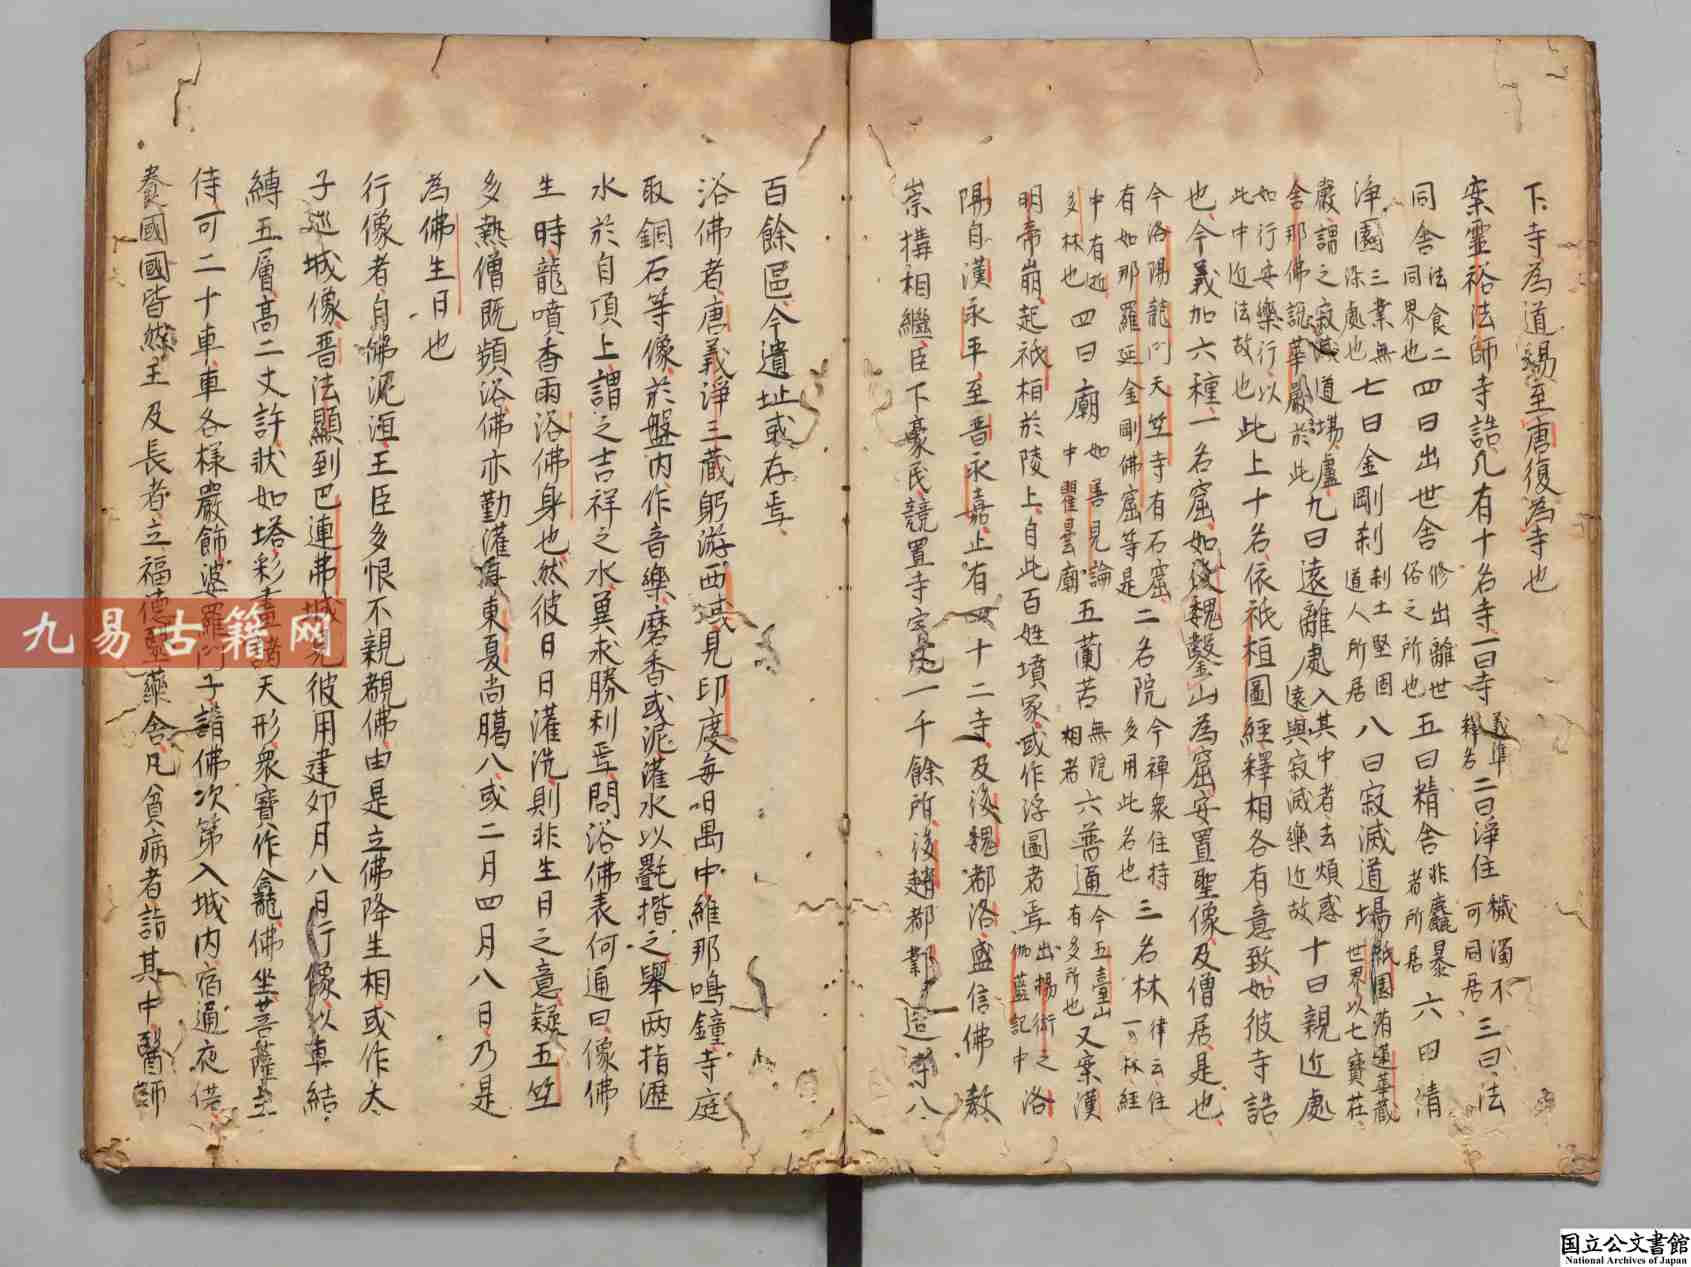 下寺為道場至唐復為寺也
案靈裕法師寺誥凡有十名寺一曰寺義準釋名二曰淨住穢濁不可同居三曰法
同舍法食二同界也四曰出世舍修出離世俗之所也五曰精舍非麤暴者所居六曰清
淨園三業無染處也七曰金剛刹刹土堅固道人所居八曰寂滅道場祇園有蓮華藏世界以七寶莊
嚴謂之寂滅道場盧舍那佛說華嚴於此九曰遠離處入其中者去煩惑遠與寂滅樂近故十曰親近處
如行安樂行以此中近法故也此上十名依祇桓圖經釋相各有意致如彼寺誥
也今義加六種一名窟如後魏鑿山為窟安置聖像及僧居是也
今洛陽龍門天竺寺有石窟有如那羅延金剛佛窟等是二名院今禪衆住持多用此名也三名林律云住一林經
中有逝多林也四曰廟如善見論中瞿曇廟五蘭若無院相者六普通今五臺山有多所也又案漢
明帝崩起祇桓於陵上自此百姓墳冢或作浮圖者焉出楊衒之伽藍記中洛
陽自漢永平至晉永嘉止有四十二寺及後魏都洛盛信佛教
崇搆相繼臣下豪民競置寺宇是一千餘所後趙都鄴造寺八
百餘區今遺址或存焉
浴佛者唐義淨三藏躬游西域見印度每日禺中維那鳴鐘寺庭
取銅石等像於盤内作音樂磨香或泥灌水以氎揩之舉两指瀝
水於自頂上謂之吉祥之水冀求勝利焉問浴佛表何通曰像佛
生時龍噴香雨浴佛身也然彼日日灌洗則非生日之意疑五竺
多熱僧既頻浴佛亦勤灌耳東夏尚臈八或二月四月八日乃是
為佛生日也
行像者自佛泥洹王臣多恨不親覩佛由是立佛降生相或作太
子巡城像晋法顯到巴連弗城見彼用建夘月八日行像以車結
縛五層高二丈許狀如塔彩畫諸天形衆寶作龕佛坐菩薩立
侍可二十車車各樣嚴飾婆羅門子請佛次第入城内宿通夜供
養國國皆然王及長者立福德醫藥舍凡貧病者詣其中醫師
九易古籍网
国立公文書館
National Archives of Japan